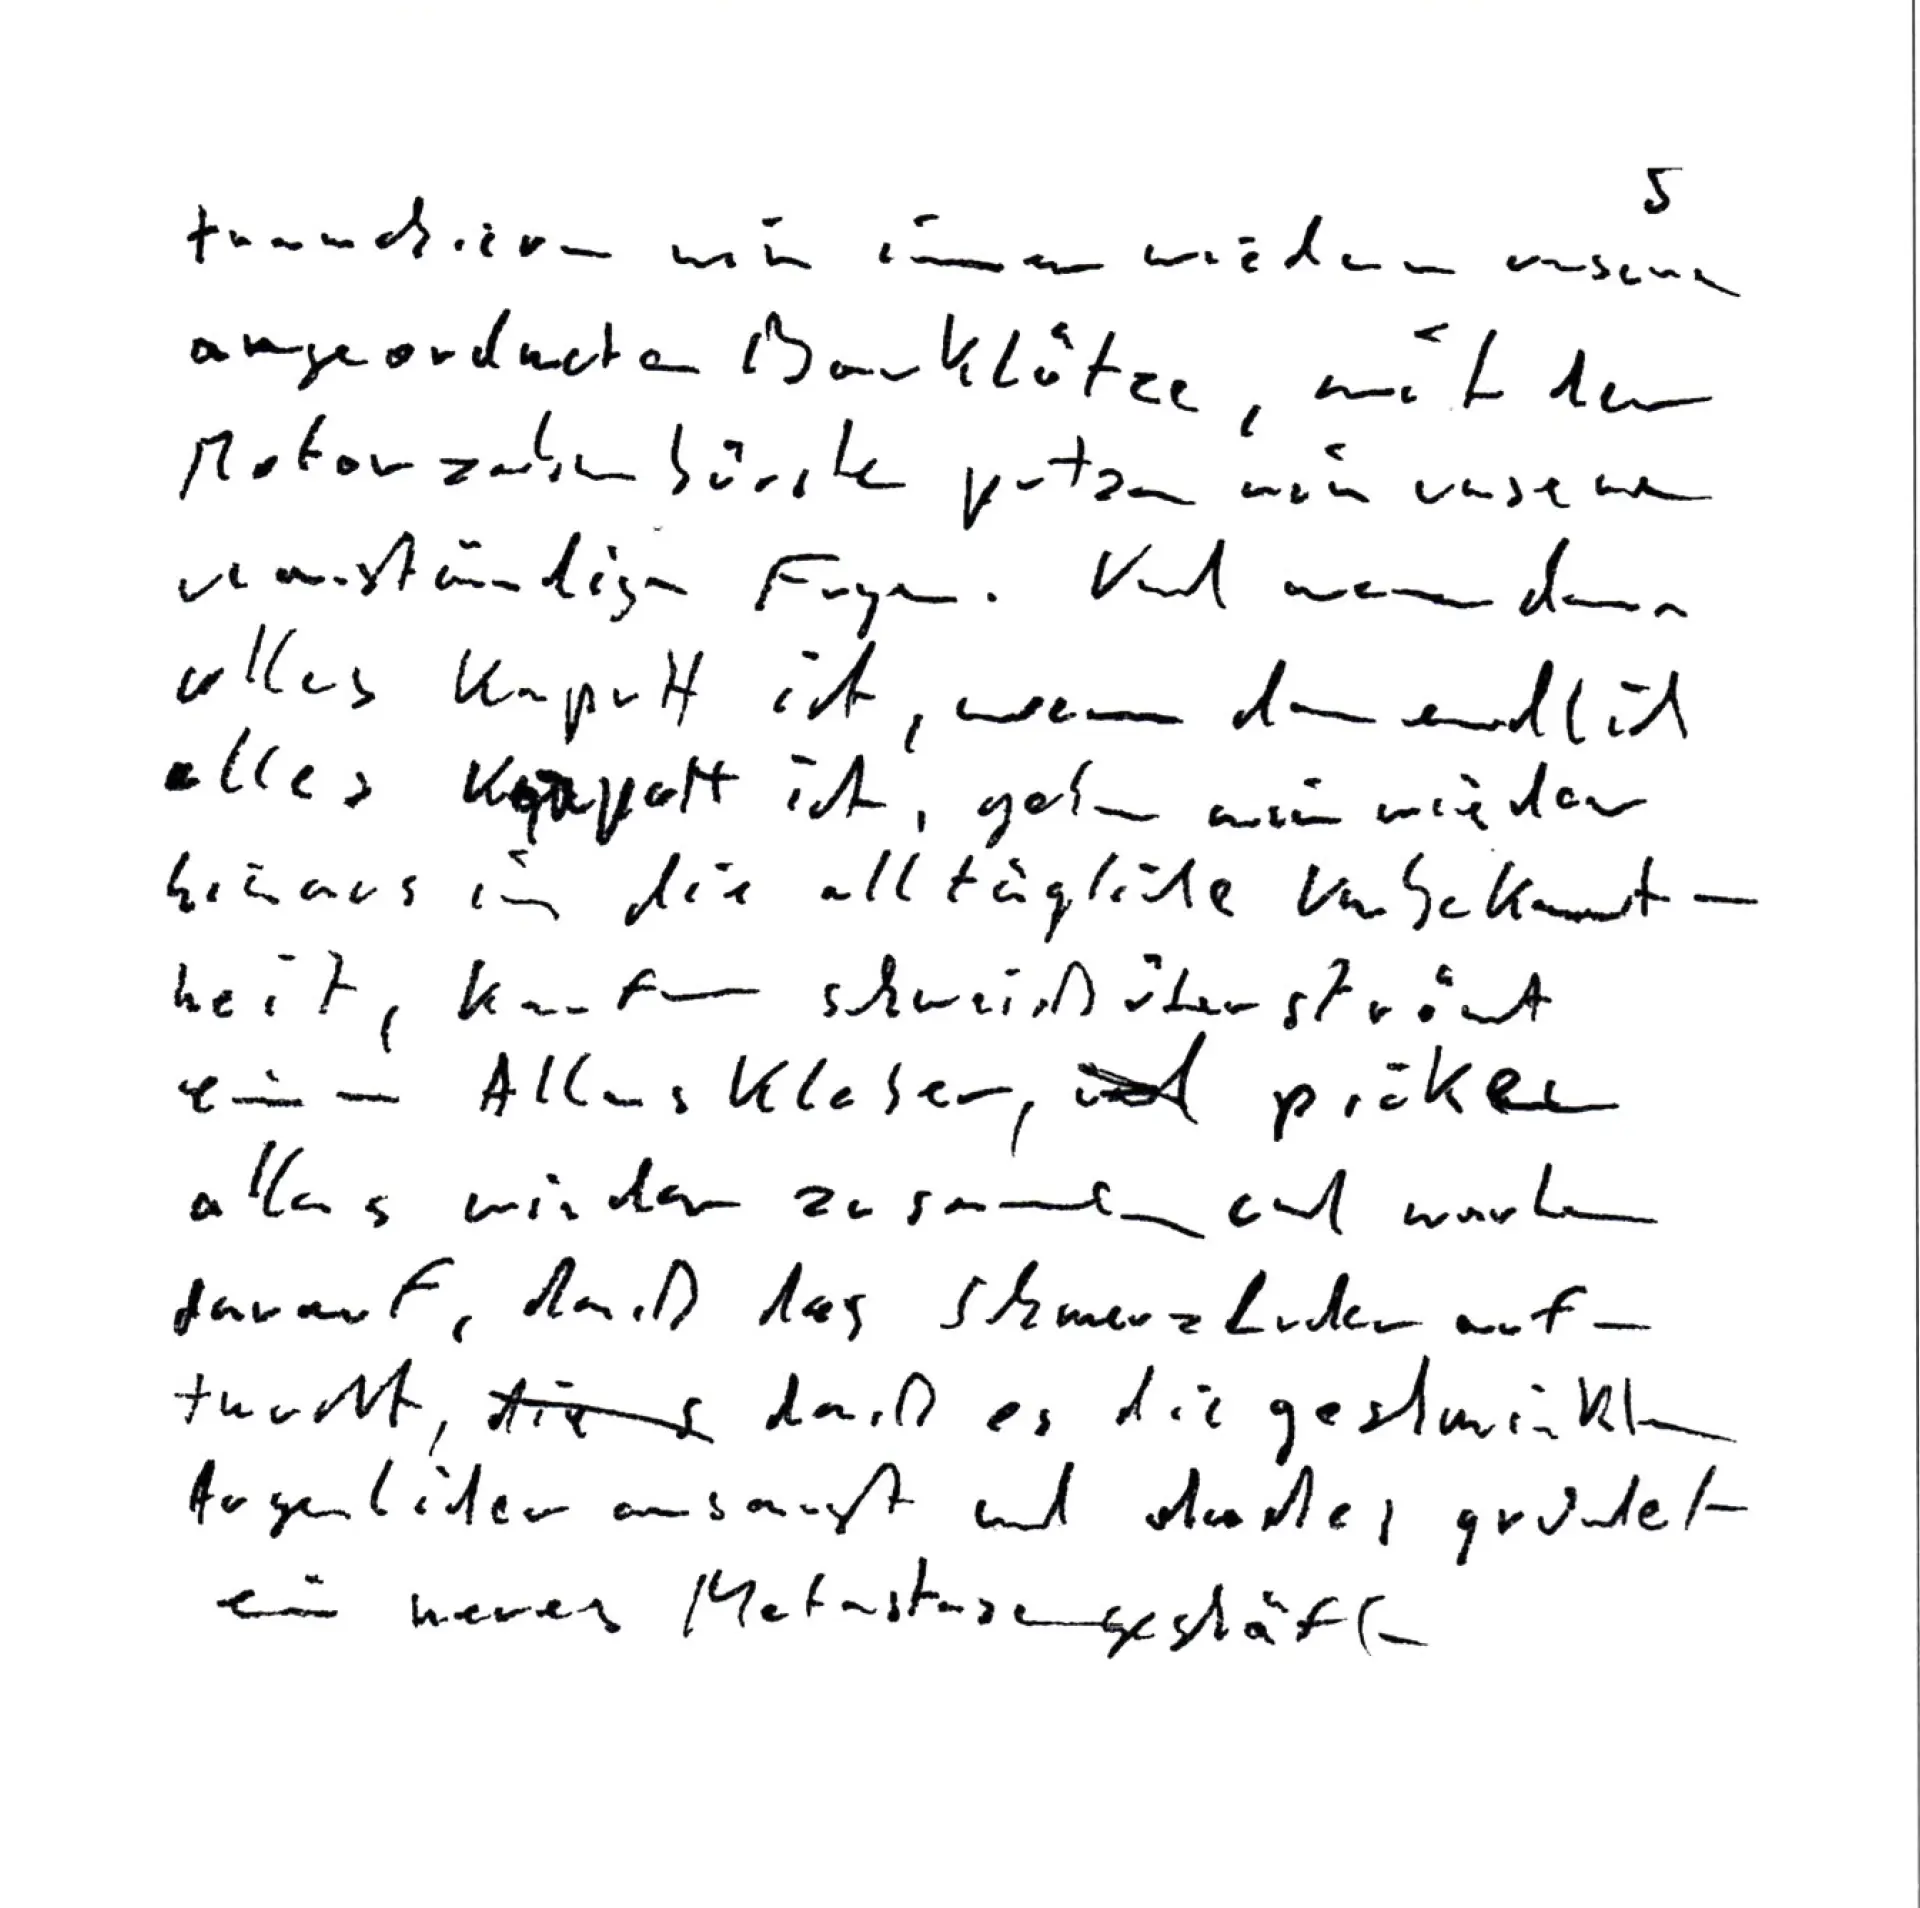 5
tranchieren wir immer wieder unsere
angeordneten Bauklötze, mit der
Motorzahnbürste putzen wir unsere
verständigen Fugen. Und wenn dann
alles kaputt ist, wenn dann endlich
alles kaputt ist, gehen wir wieder
hinaus in die alltägliche Unbekannt-
heit, kaufen schweißüberströmt
einen Alleskleber, picken
alles wieder zusammen und warten
darauf, daß das Schmerzluder auf-
taucht, daß es die geschminkten
Augenlider ansaugt und dadas gründet
ein neues Metastasengeschäft